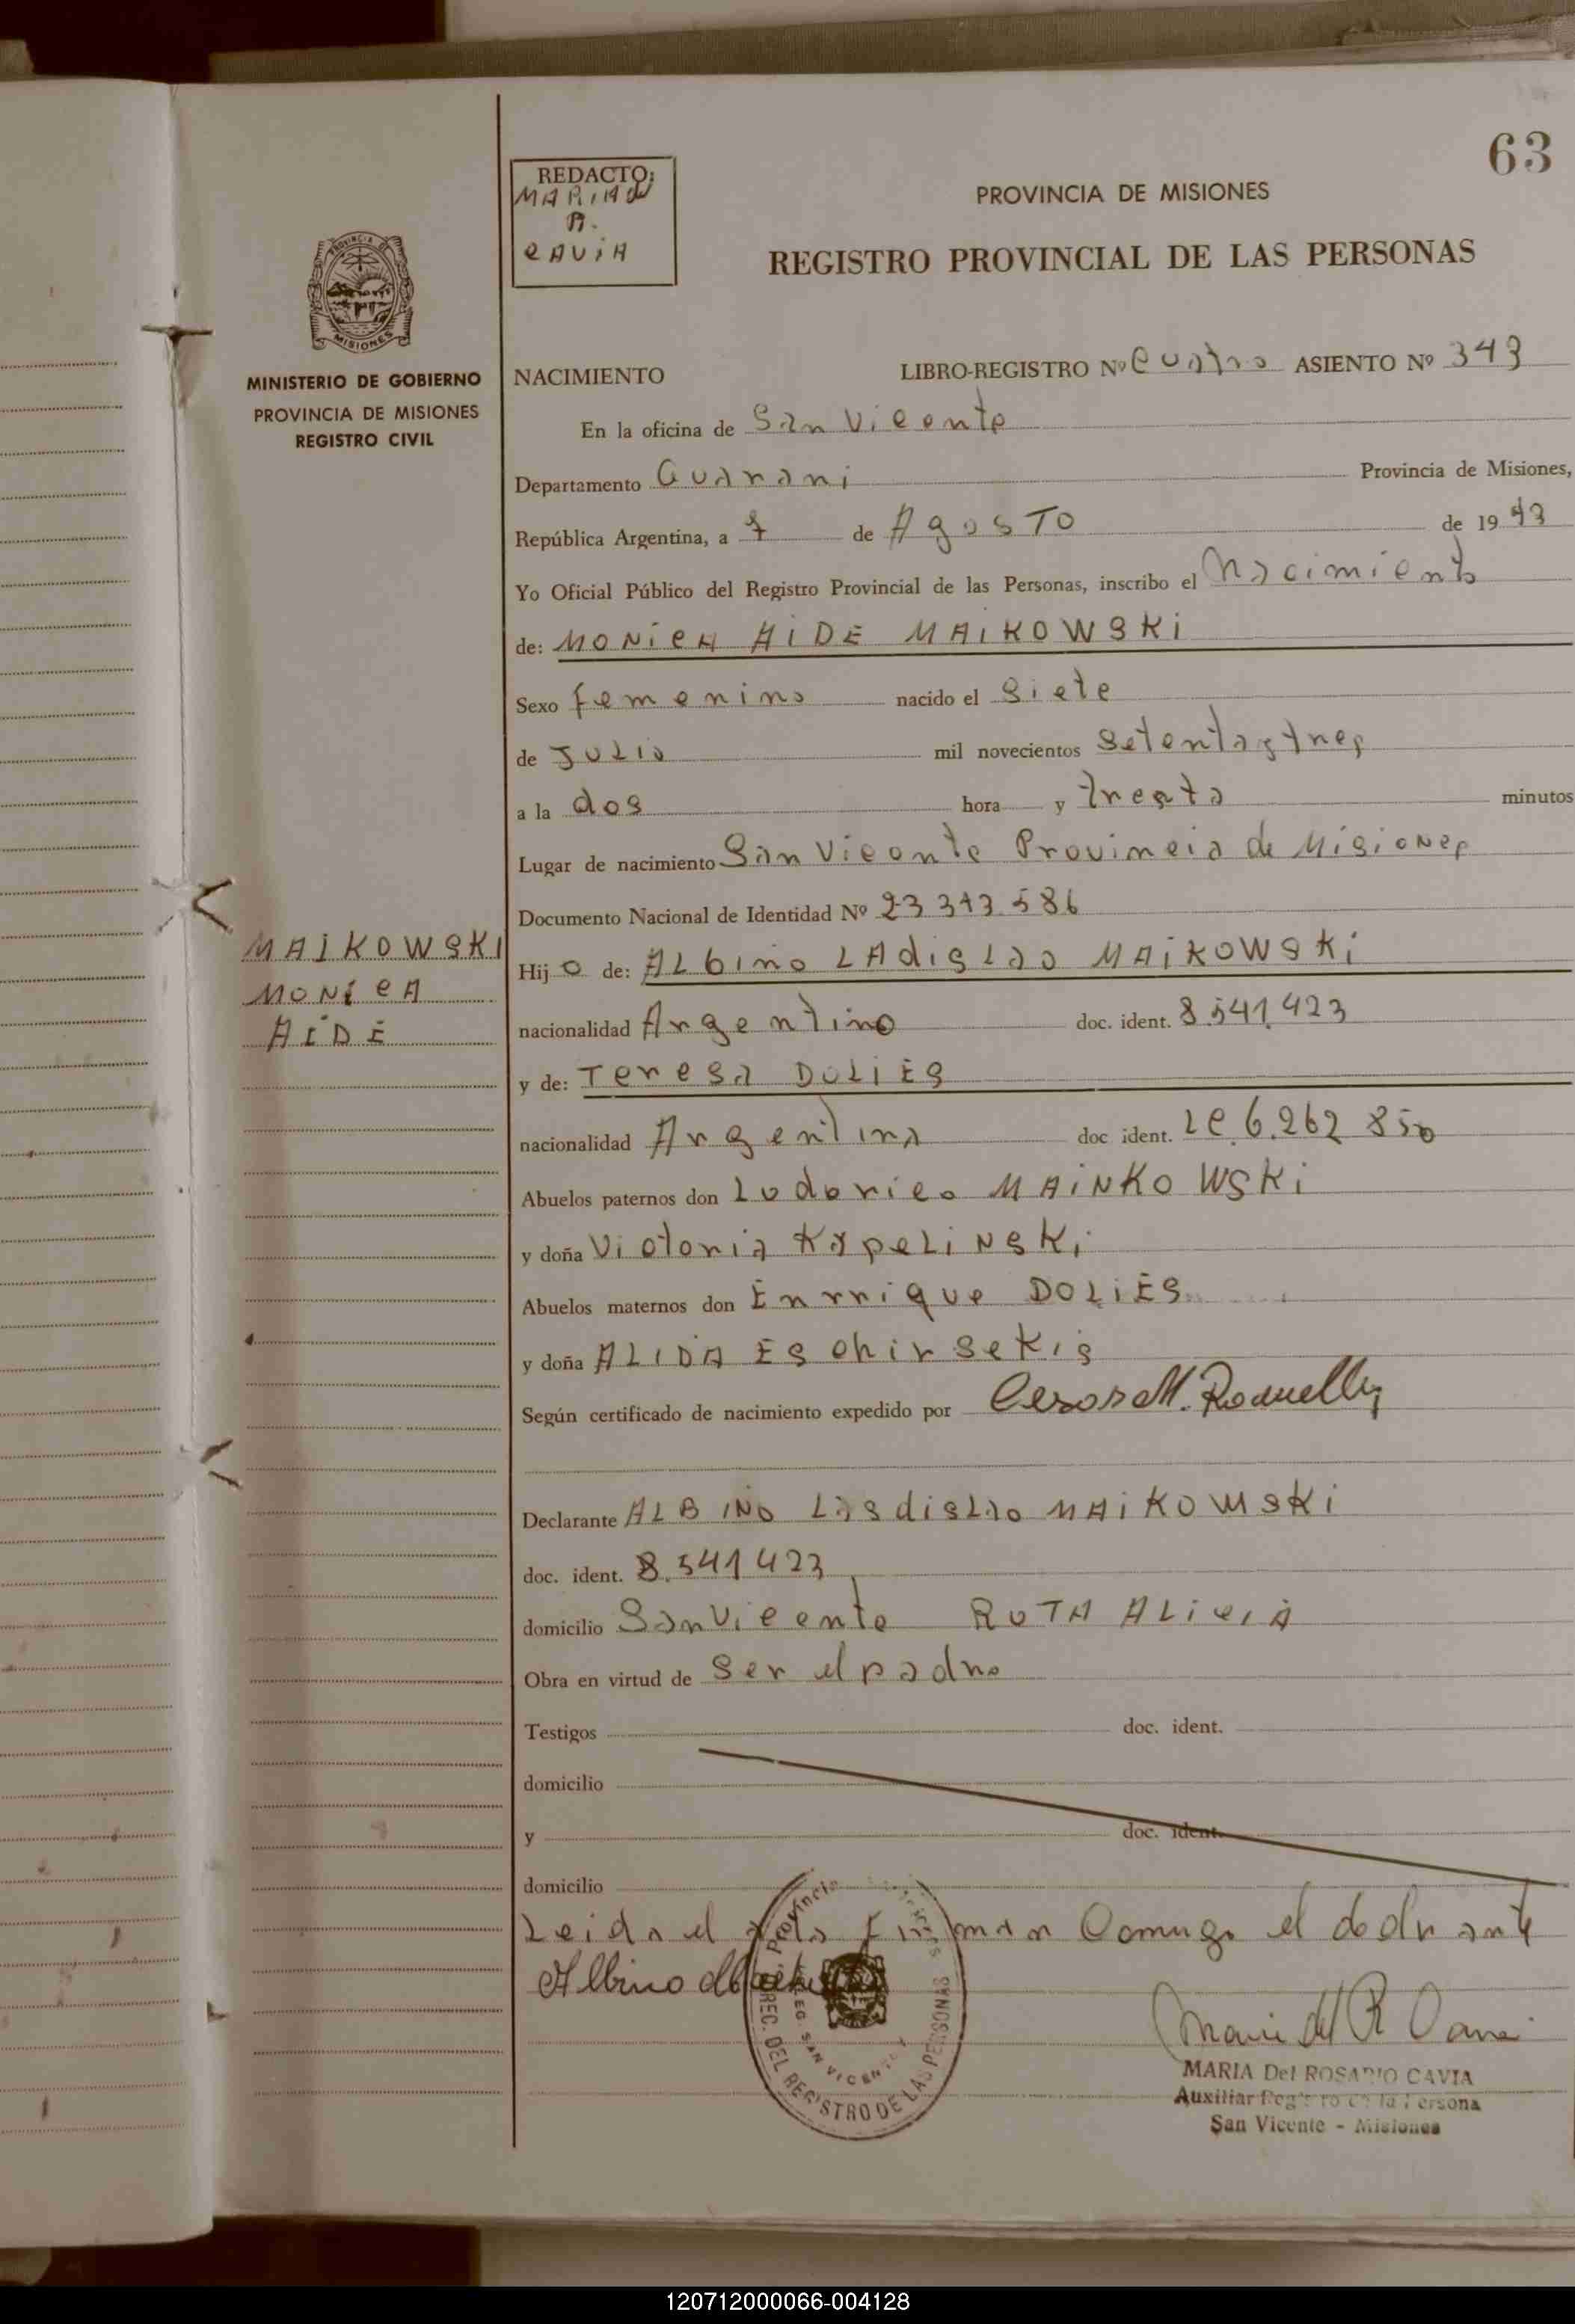 63
REDACTO:
MARIA del
R.
CAVIA
PROVINCIA DE MISIONES
REGISTRO PROVINCIAL DE LAS PERSONAS
PROVINCIA DE
MISIONES
MINISTERIO DE GOBIERNO
PROVINCIA DE MISIONES
REGISTRO CIVIL
NACIMIENTO LIBRO-REGISTRO Nº Cuatro ASIENTO Nº 343
En la oficina de San Vicente
Departamento Guarani Provincia de Misiones,
República Argentina, a 7 de AgosTo de 19 73
Yo Oficial Público del Registro Provincial de las Personas, inscribo el Nacimiento
de: MONiCA AIDE MAIKOWSKi
Sexo femenino nacido el Siete
de JULIO mil novecientos Setentaytres
a la dos hora y treinta minutos
Lugar de nacimiento San Vicente Provincia de Misiones
Documento Nacional de Identidad Nº 23 343.586
MAIKOWSKI
MONiCA
AIDE
Hij o de: ALbino LAdisLao MAiKOWSKi
nacionalidad Argentino doc. ident. 8.541.423
y de: Teresa DOLiES
nacionalidad Argentina doc ident. LC.6.262 850
Abuelos paternos don Lodovico MAiNKOWSKi
y doña Victoria KapeLiNSKi
Abuelos maternos don Enrrique DOLiES
y doña ALIDA ESchirseKis
Según certificado de nacimiento expedido por Cesar M.
Declarante ALBINO LasdisLao MAiKOWSKi
doc. ident. 8.541 423
domicilio San Vicente RUTA ALiciA
Obra en virtud de Ser el padre
Testigos doc. ident.
domicilio
y doc. ident.
domicilio
Leida el acta Firman Conmigo el declarante
Albino
Provincia Misiones
DIREC. DEL REGISTRO DE LAS PERSONAS
SAN VICENTE
Maria del R Cavia
MARIA Del ROSARIO CAVIA
Auxiliar Registro de la Persona
San Vicente - Misiones
120712000066-004128